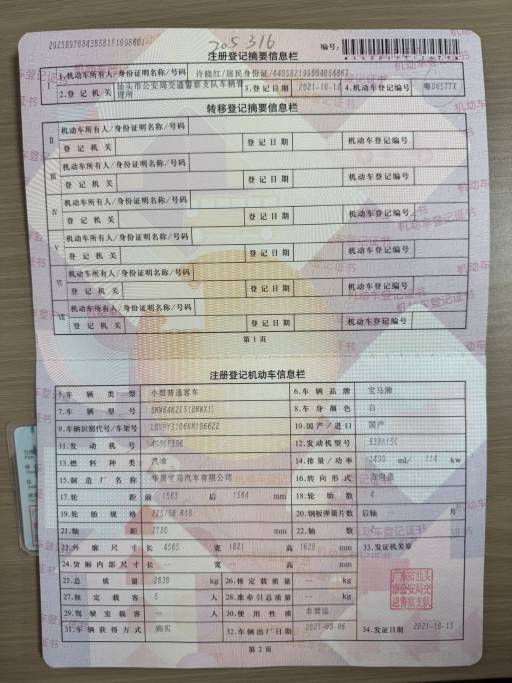 205316
注册登记摘要信息栏
编号:
Ⅰ 1.机动车所有人/身份证明名称/号码 许晓红/居民身份证
2.登 记 机 关 汕头市公安局交通警察支队车辆管理所 3.登记日期 2021-10-13 4.机动车登记编号 粤D6577X
转移登记摘要信息栏
Ⅱ 机动车所有人/身份证明名称/号码
登 记 机 关 登 记 日 期 机动车登记编号
Ⅲ 机动车所有人/身份证明名称/号码
登 记 机 关 登 记 日 期 机动车登记编号
Ⅳ 机动车所有人/身份证明名称/号码
登 记 机 关 登 记 日 期 机动车登记编号
Ⅴ 机动车所有人/身份证明名称/号码
登 记 机 关 登 记 日 期 机动车登记编号
Ⅵ 机动车所有人/身份证明名称/号码
登 记 机 关 登 记 日 期 机动车登记编号
Ⅶ 机动车所有人/身份证明名称/号码
登 记 机 关 登 记 日 期 机动车登记编号
第 1 页
注册登记机动车信息栏
5.车 辆 类 型 小型普通客车 6.车 辆 品 牌 宝马牌
7.车 辆 型 号 8.车 身 颜 色 白
9.车辆识别代号/车架号 10.国产/进口 国产
11.发 动 机 号 12.发动机型号
13.燃 料 种 类 汽油 14.排量/功率 1499 ml/ kw
15.制 造 厂 名 称 华晨宝马汽车有限公司 16.转 向 形 式 方向盘
17.轮 距 前 1563 后 1564 mm 18.轮 胎 数 4
19.轮 胎 规 格 225/50 R18 20.钢板弹簧片数 后轴 片
21.轴 距 2780 mm 22.轴 数 2
23.外 廓 尺 寸 长 4565 宽 1821 高 1620 mm 33.发证机关章
24.货厢内部尺寸 长 宽 高 mm
25.总 质 量 2030 kg 26.核 定 载 质 量 kg
27.核 定 载 客 5 人 28.准牵引总质量 kg
29.驾 驶 室 载 客 人 30.使 用 性 质 非营运
31.车辆获得方式 购买 32.车辆出厂日期 34.发证日期 2021-10-13
广东省汕头
市公安局交
通警察支队
第 2 页